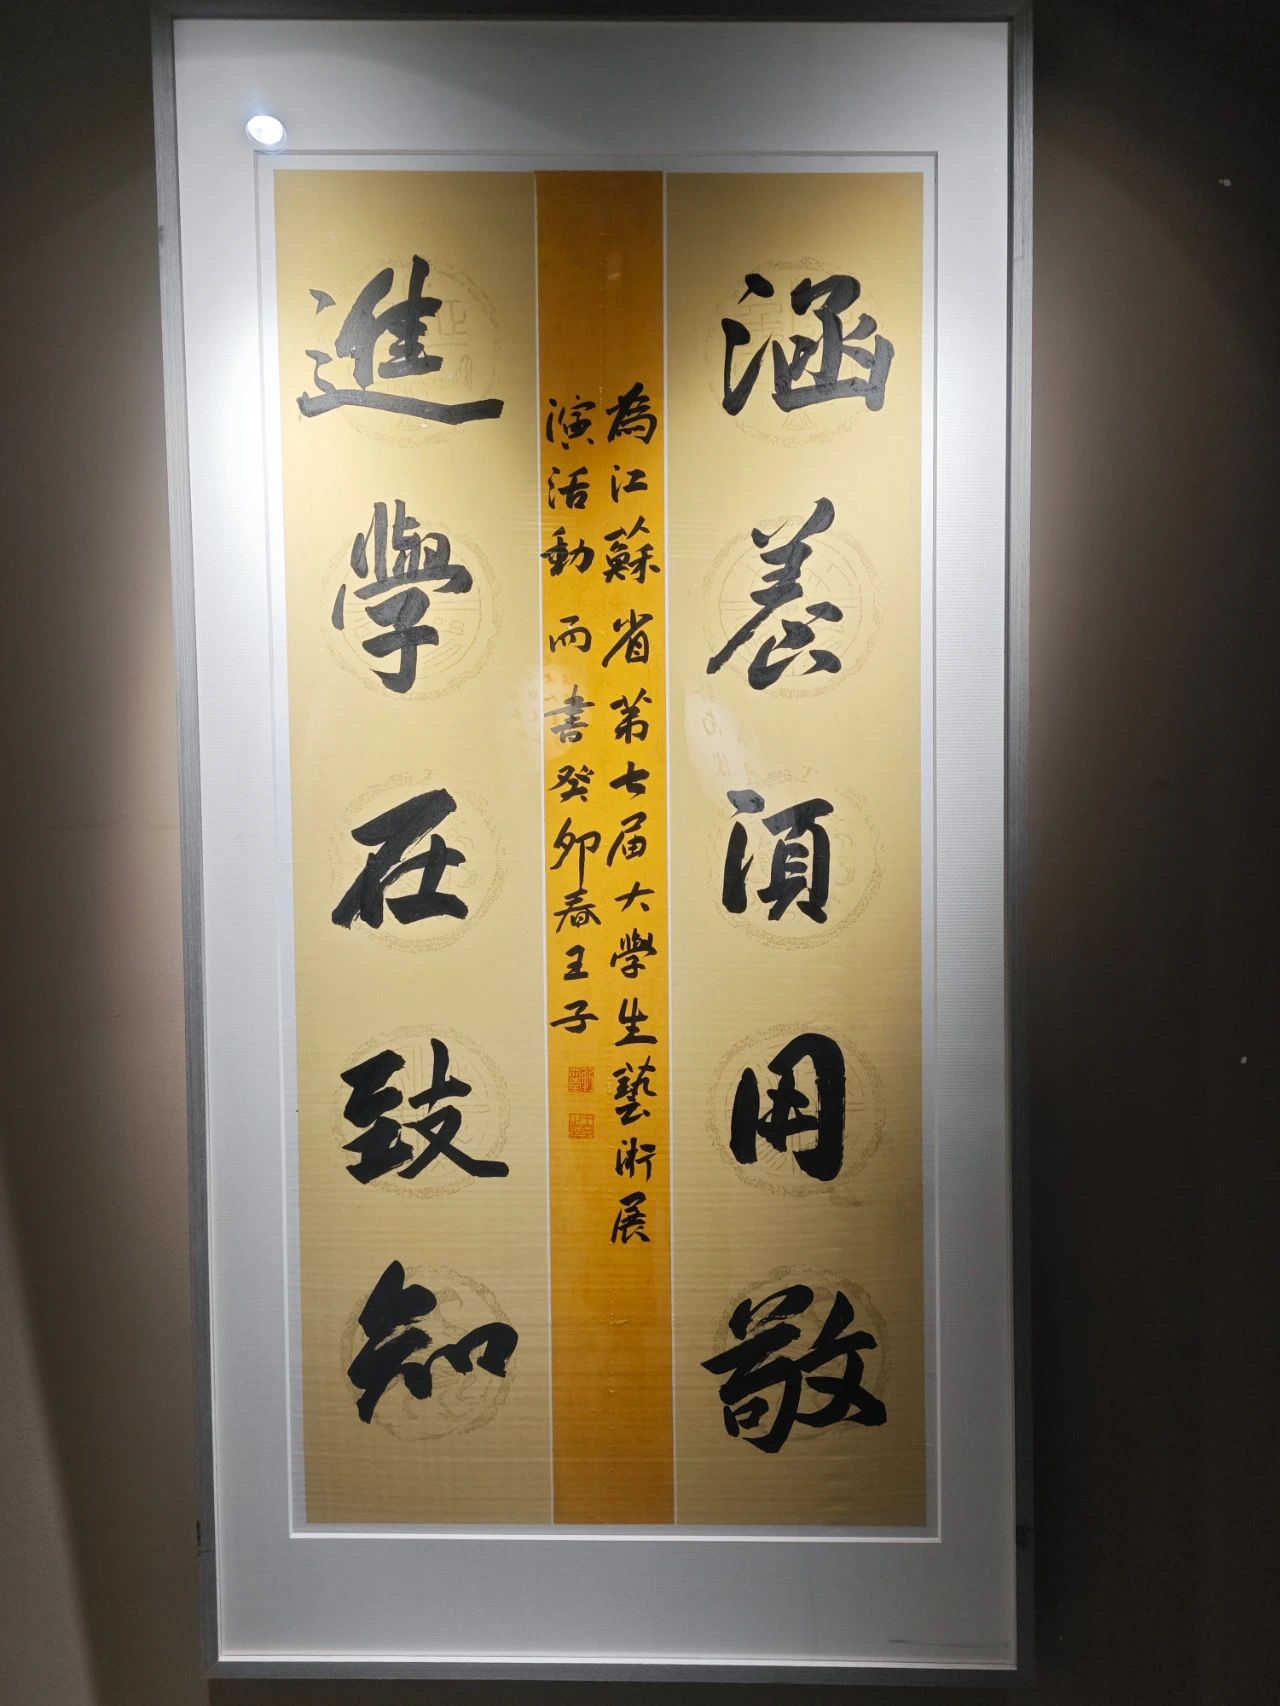 涵養須用敬
為江蘇省第七屆大學生藝術展
演活動而書癸卯春王子
進學在致知